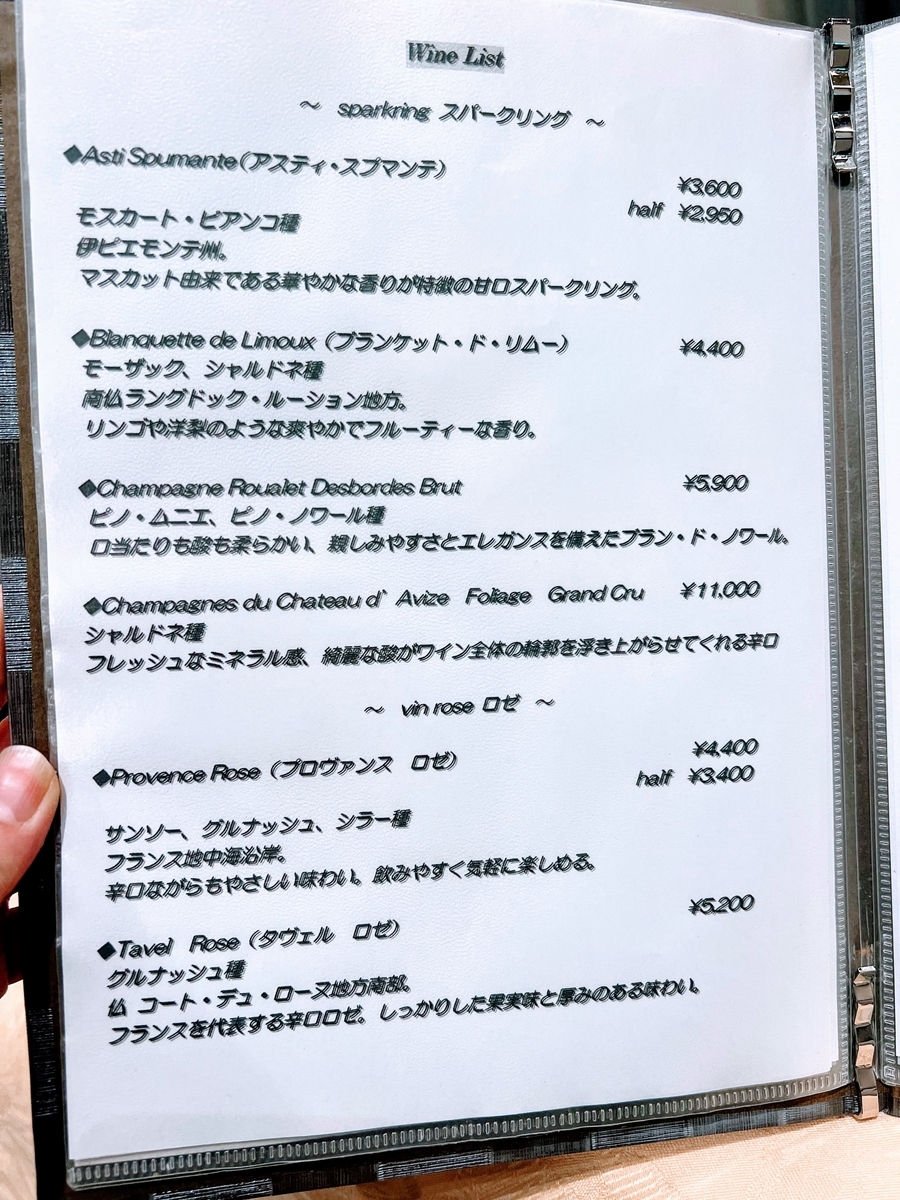 Wine List
～ sparkring スパークリング ～
◆Asti Spumante（アスティ・スプマンテ）
¥3,600
half ¥2,950
モスカート・ビアンコ種
伊ピエモンテ州。
マスカット由来である華やかな香りが特徴の甘口スパークリング。
◆Blanquette de Limoux（ブランケット・ド・リムー） ¥4,400
モーザック、シャルドネ種
南仏ラングドック・ルーション地方。
リンゴや洋梨のような爽やかでフルーティーな香り。
◆Champagne Roualet Desbordes Brut ¥5,900
ピノ・ムニエ、ピノ・ノワール種
口当たりも酸も柔らかい、親しみやすさとエレガンスを備えたブラン・ド・ノワール。
◆Champagnes du Chateau d' Avize Foliage Grand Cru ¥11,000
シャルドネ種
フレッシュなミネラル感、綺麗な酸がワイン全体の輪郭を浮き上がらせてくれる辛口
～ vin rose ロゼ ～
¥4,400
◆Provence Rose（プロヴァンス ロゼ）
half ¥3,400
サンソー、グルナッシュ、シラー種
フランス地中海沿岸。
辛口ながらもやさしい味わい。飲みやすく気軽に楽しめる。
¥5,200
◆Tavel Rose（タヴェル ロゼ）
グルナッシュ種
仏 コート・デュ・ローヌ地方南部。
フランスを代表する辛口ロゼ。しっかりした果実味と厚みのある味わい。